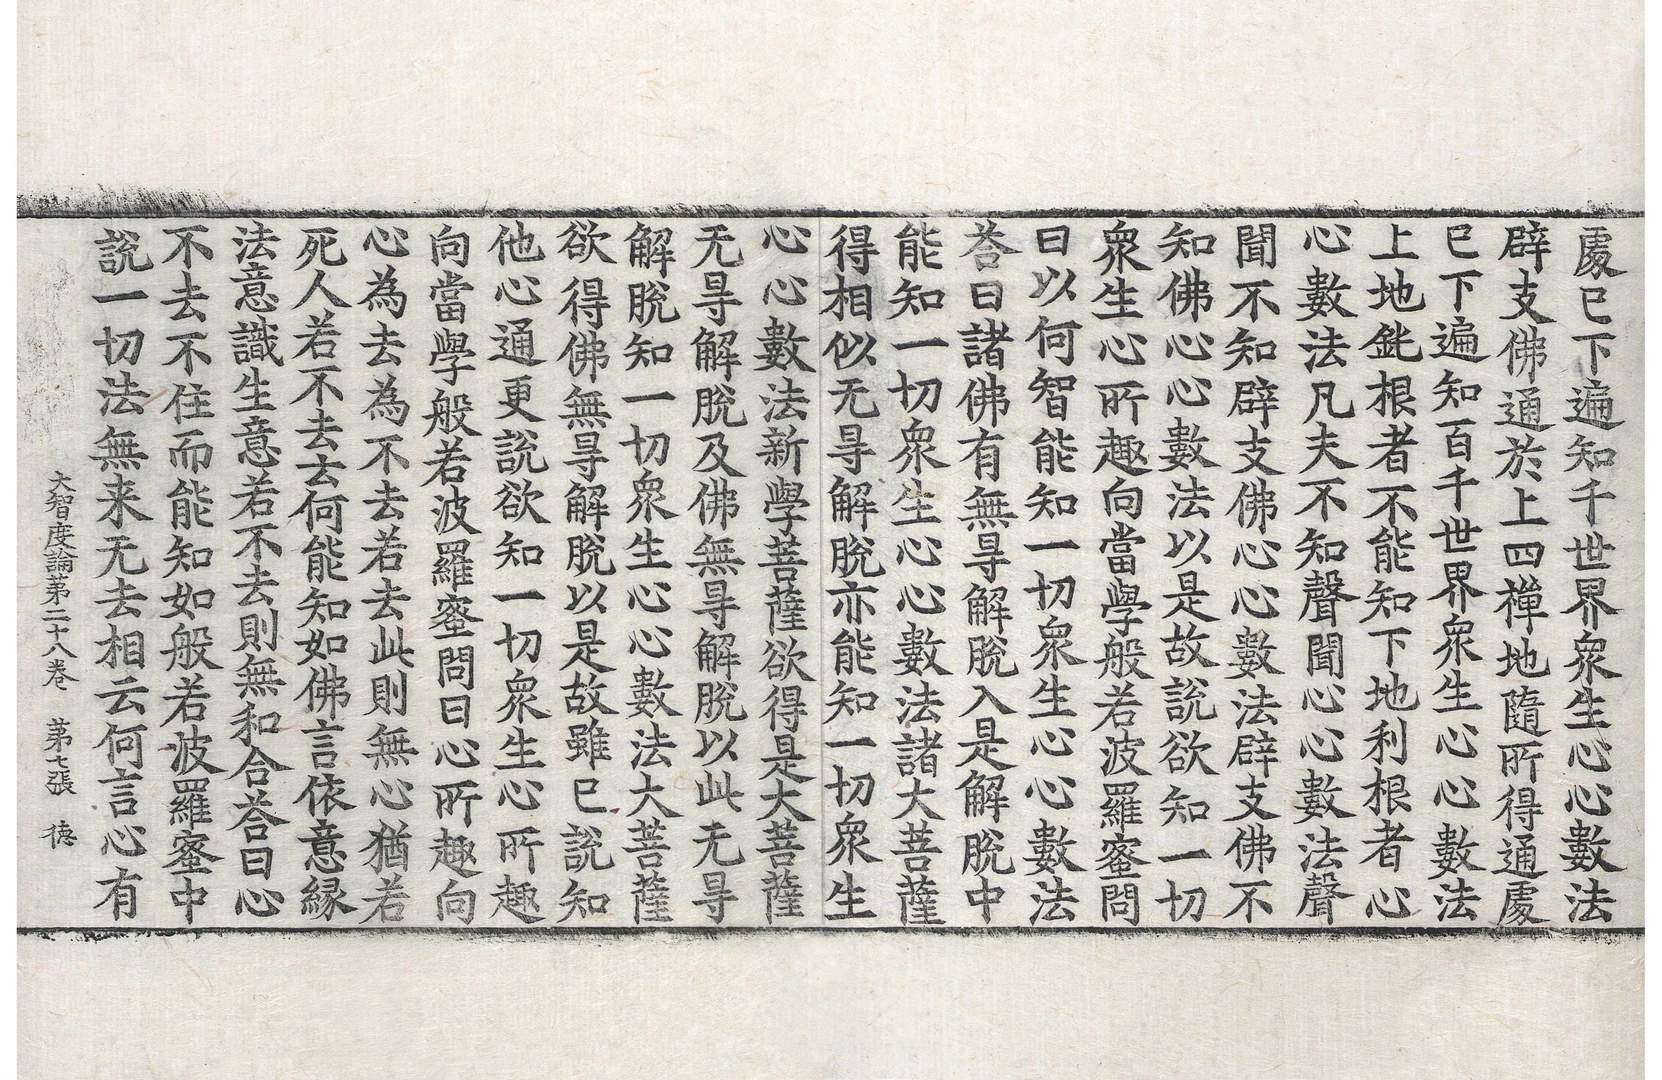 處已下遍知千世界衆生心心數法
辟支佛通於上四禪地隨所得通處
已下遍知百千世界衆生心心數法
上地鈍根者不能知下地利根者心
心數法凡夫不知聲聞心心數法聲
聞不知辟支佛心心數法辟支佛不
知佛心心數法以是故說欲知一切
衆生心所趣向當學般若波羅蜜問
曰以何智能知一切衆生心心數法
荅曰諸佛有無㝵解脫入是解脫中
能知一切衆生心心數法諸大菩薩
得相似无㝵解脫亦能知一切衆生
心心數法新學菩薩欲得是大菩薩
无㝵解脫及佛無㝵解脫以此无㝵
解脫知一切衆生心心數法大菩薩
欲得佛無㝵解脫以是故雖已說知
他心通更說欲知一切衆生心所趣
向當學般若波羅蜜問曰心所趣向
心為去為不去若去此則無心猶若
死人若不去云何能知如佛言依意緣
法意識生意若不去則無和合荅曰心
不去不住而能知如般若波羅蜜中
說一切法無来无去相云何言心有
大智度論第二十八卷 第七張 德